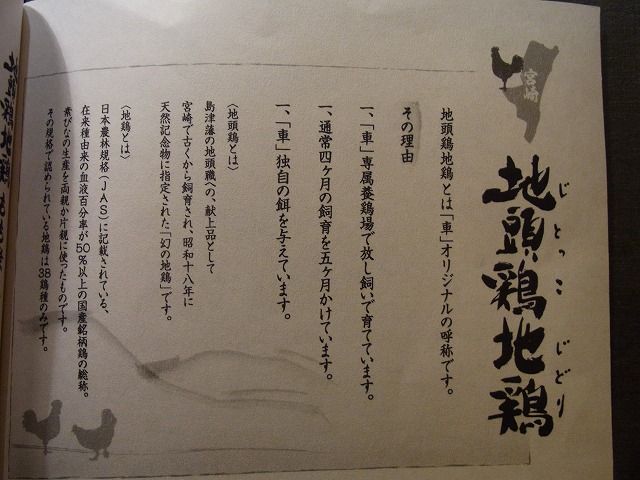 宮崎
地頭鶏地鶏
じとっこ じどり
地頭鶏地鶏とは「車」オリジナルの呼称です。
その理由
一、「車」専属養鶏場で放し飼いで育てています。
一、通常四ヶ月の飼育を五ヶ月かけています。
一、「車」独自の餌を与えています。
〈地頭鶏とは〉
島津藩の地頭職への、献上品として
宮崎で古くから飼育され、昭和十八年に
天然記念物に指定された「幻の地鶏」です。
〈地鶏とは〉
日本農林規格(JAS)に記載されている、
在来種由来の血液百分率が50%以上の国産銘柄鶏の総称。
素びなの生産を両親か片親に使ったものです。
その規格で認められている地鶏は38鶏種のみです。
地頭鶏地鶏